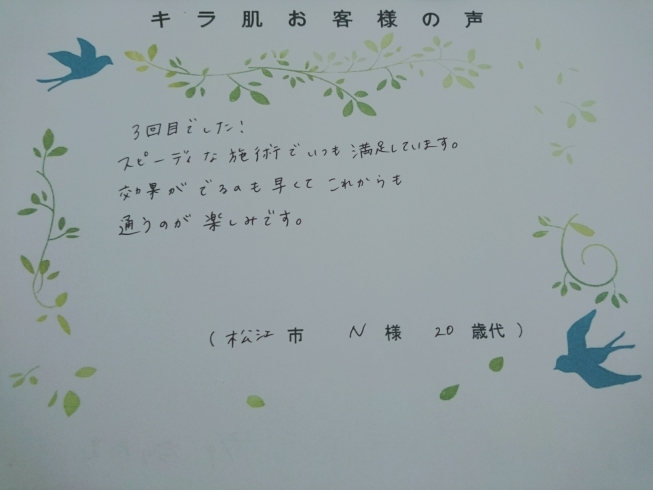 キラ肌お客様の声
3回目でした!
スピーディな施術でいつも満足しています。
効果がでるのも早くてこれからも
通うのが楽しみです。
(松江市 N様 20歳代)